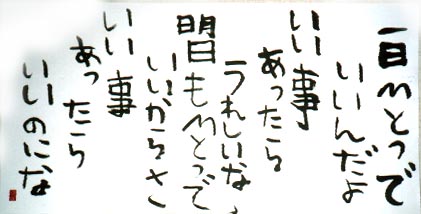 一日ひとつで
いいんだよ
いい事
あったら
うれしいな
明日もひとつで
いいからさ
いい事
あったら
いいのにな